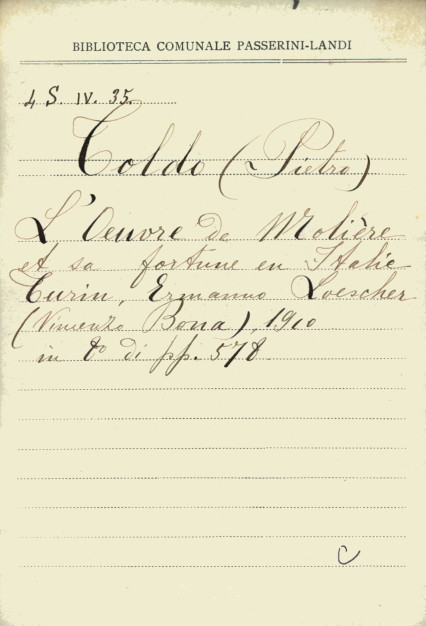 BIBLIOTECA COMUNALE PASSERINI-LANDI
4 S. IV. 35.
Toldo (Pietro)
L'Oeuvre de Molière
et sa fortune en Italie
Turin, Ermanno Loescher
(Vincenzo Bona), 1910
in 8º di pp. 578.
C